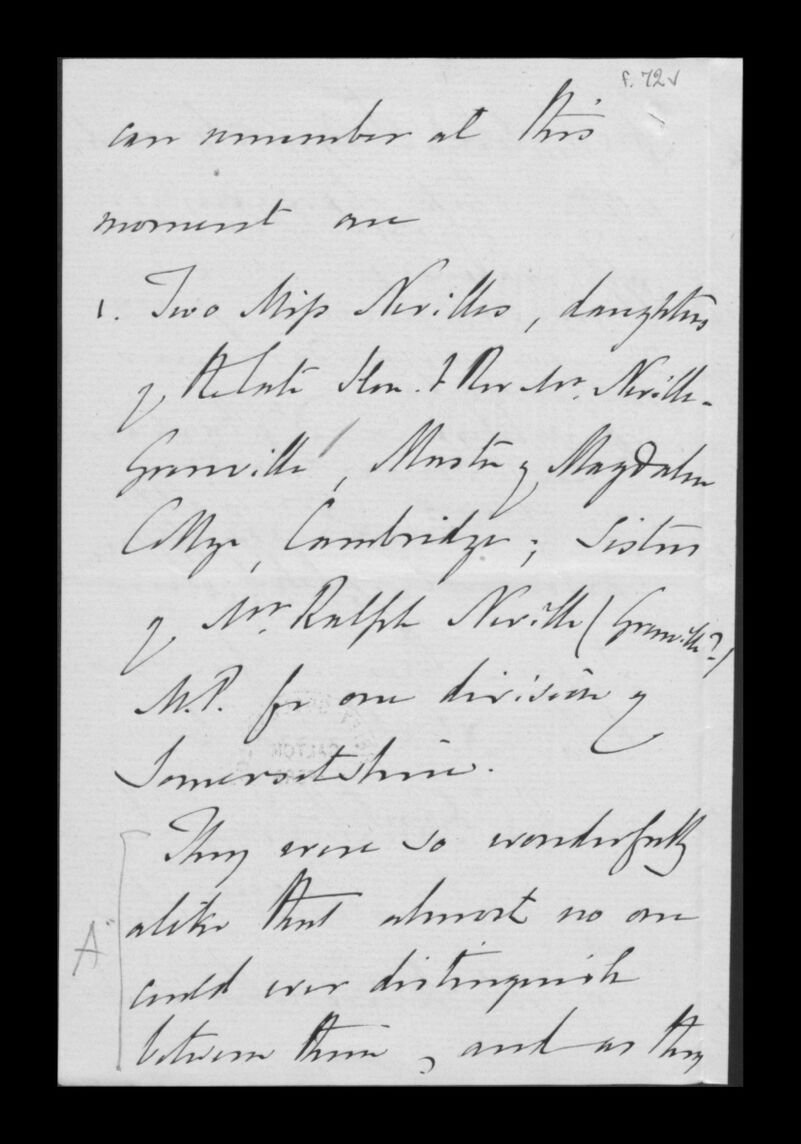 f. 72v
can remember at this
moment are
1. Two Miss Nevilles, daughters
of the late Hon. & Rev Mr. Neville-
Grenville, Master of Magdalen
College, Cambridge; Sisters
of Mr. Ralph Neville (Grenville?)
M.P. for one division of
Somersetshire.
They were so wonderfully
alike that almost no one
A
could ever distinguish
between them, and as they